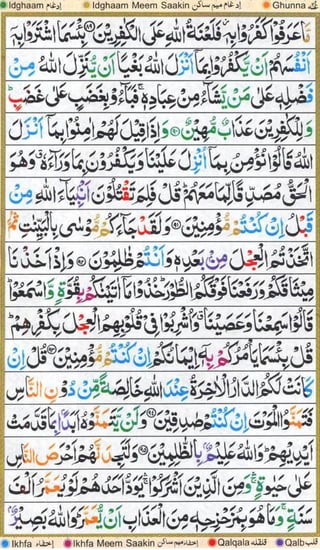 Idghaam ادغام Idghaam Meem Saakin ادغام میم ساکن Ghunna غنه
مَّا عَرَفُوْا كَفَرُوْا بِهٖ٘ فَلَعْنَةُ اللّٰهِ عَلَى الْكٰفِرِيْنَ ﴿۸۹﴾ بِئْسَمَا اشْتَرَوْا بِهٖۤ
اَنْفُسَهُمْ اَنْ يَّكْفُرُوْا بِمَاۤ اَنْزَلَ اللّٰهُ بَغْيًا اَنْ يُّنَزِّلَ اللّٰهُ مِنْ
فَضْلِهٖ عَلٰى مَنْ يَّشَآءُ مِنْ عِبَادِهٖ ۚ فَبَآءُوْ بِغَضَبٍ عَلٰى غَضَبٍ ؕ
وَلِلْكٰفِرِيْنَ عَذَابٌ مُّهِيْنٌ ﴿۹۰﴾ وَاِذَا قِيْلَ لَهُمْ اٰمِنُوْا بِمَاۤ اَنْزَلَ
اللّٰهُ قَالُوْا نُؤْمِنُ بِمَاۤ اُنْزِلَ عَلَيْنَا وَيَكْفُرُوْنَ بِمَا وَرَآءَهٗ ۗ وَهُوَ
الْحَقُّ مُصَدِّقًا لِّمَا مَعَهُمْ ؕ قُلْ فَلِمَ تَقْتُلُوْنَ اَنْۢبِيَآءَ اللّٰهِ مِنْ
قَبْلُ اِنْ كُنْتُمْ مُّؤْمِنِيْنَ ﴿۹۱﴾ وَلَقَدْ جَآءَكُمْ مُّوْسٰى بِالْبَيِّنٰتِ ثُمَّ
اتَّخَذْتُمُ الْعِجْلَ مِنْۢ بَعْدِهٖ وَاَنْتُمْ ظٰلِمُوْنَ ﴿۹۲﴾ وَاِذْ اَخَذْنَا
مِيْثَاقَكُمْ وَرَفَعْنَا فَوْقَكُمُ الطُّوْرَ ؕ خُذُوْا مَاۤ اٰتَيْنٰكُمْ بِقُوَّةٍ وَّاسْمَعُوْا ؕ
قَالُوْا سَمِعْنَا وَعَصَيْنَا ۗ وَاُشْرِبُوْا فِيْ قُلُوْبِهِمُ الْعِجْلَ بِكُفْرِهِمْ ؕ
قُلْ بِئْسَمَا يَاْمُرُكُمْ بِهٖۤ اِيْمَانُكُمْ اِنْ كُنْتُمْ مُّؤْمِنِيْنَ ﴿۹۳﴾ قُلْ اِنْ
كَانَتْ لَكُمُ الدَّارُ الْاٰخِرَةُ عِنْدَ اللّٰهِ خَالِصَةً مِّنْ دُوْنِ النَّاسِ
فَتَمَنَّوُا الْمَوْتَ اِنْ كُنْتُمْ صٰدِقِيْنَ ﴿۹۴﴾ وَلَنْ يَّتَمَنَّوْهُ اَبَدًاۢ بِمَا قَدَّمَتْ
اَيْدِيْهِمْ ؕ وَاللّٰهُ عَلِيْمٌۢ بِالظّٰلِمِيْنَ ﴿۹۵﴾ وَلَتَجِدَنَّهُمْ اَحْرَصَ النَّاسِ
عَلٰى حَيٰوةٍ ۚ وَمِنَ الَّذِيْنَ اَشْرَكُوْا ۚ يَوَدُّ اَحَدُهُمْ لَوْ يُعَمَّرُ اَلْفَ
سَنَةٍ ۚ وَمَا هُوَ بِمُزَحْزِحِهٖ مِنَ الْعَذَابِ اَنْ يُّعَمَّرَ ؕ وَاللّٰهُ بَصِيْرٌۢ
Ikhfa إخفاء Ikhfa Meem Saakin إخفاء میم ساکن Qalqala قلقله Qalb قلب